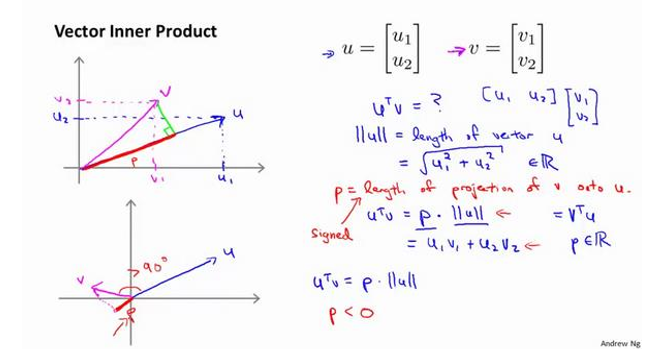 Vector Inner Product
→ u = [u₁ u₂] → v = [v₁ v₂]
uᵀv = ? [u₁ u₂] [v₁ v₂]
||u|| = length of vector u
= √u₁² + u₂² ∈ ℝ
p = length of projection of v onto u.
signed
uᵀv = p · ||u|| ← = vᵀu
= u₁v₁ + u₂v₂ ← p ∈ ℝ
uᵀv = p · ||u||
p < 0
v₂ v
u₂ u
p v₁ u₁
>90° u
v
p
Andrew Ng